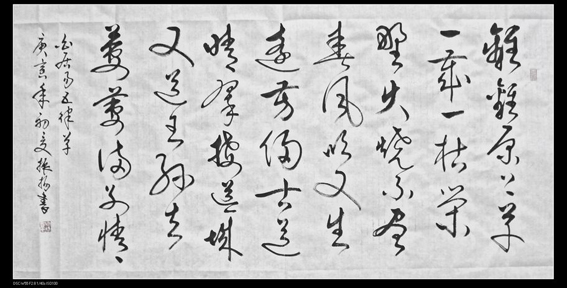 離離原上草
一歲一枯榮
野火燒不盡
春風吹又生
遠芳侵古道
晴翠接荒城
又送王孫去
萋萋滿別情
白居易五律草
庚寅年初夏振書